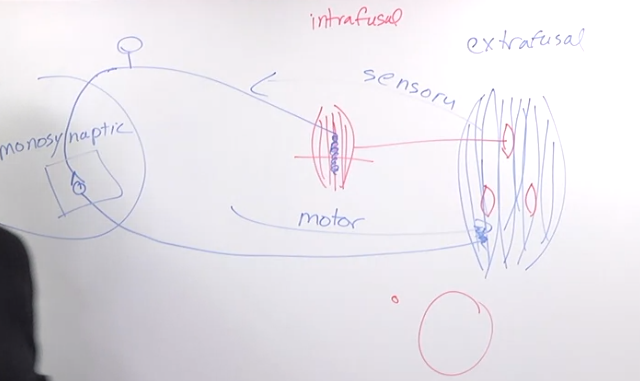 intrafusal
extrafusal
sensory
monosynaptic
motor